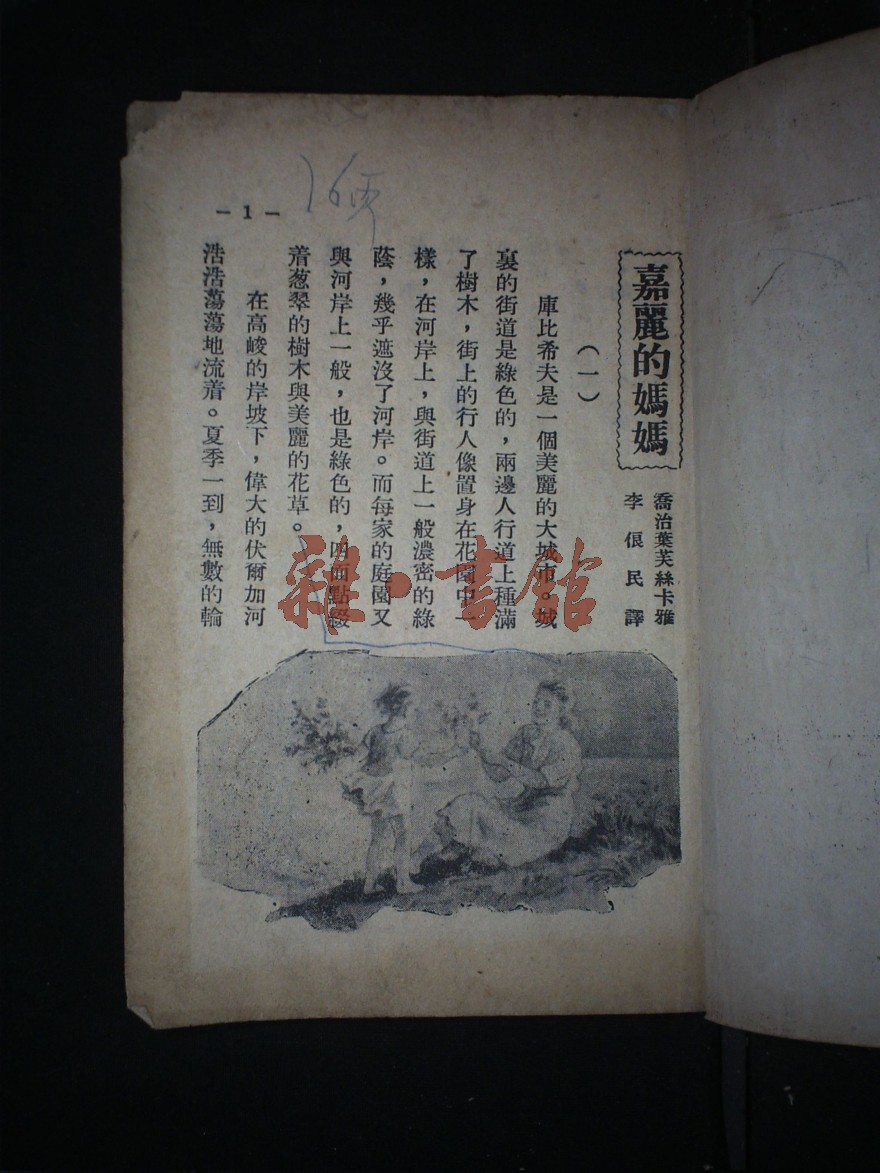 嘉麗的媽媽
喬治葉芙絲卡雅
李俍民譯
（一）
庫比希夫是一個美麗的大城市。城
裏的街道是綠色的，兩邊人行道上種滿
了樹木，街上的行人像置身在花園中一
樣，在河岸上，與街道上一般濃密的綠
蔭，幾乎遮沒了河岸。而每家的庭園又
與河岸上一般，也是綠色的，四面點綴
着葱翠的樹木與美麗的花草。
在高峻的岸坡下，偉大的伏爾加河
浩浩蕩蕩地流着。夏季一到，無數的輪
－1－
雜·書館